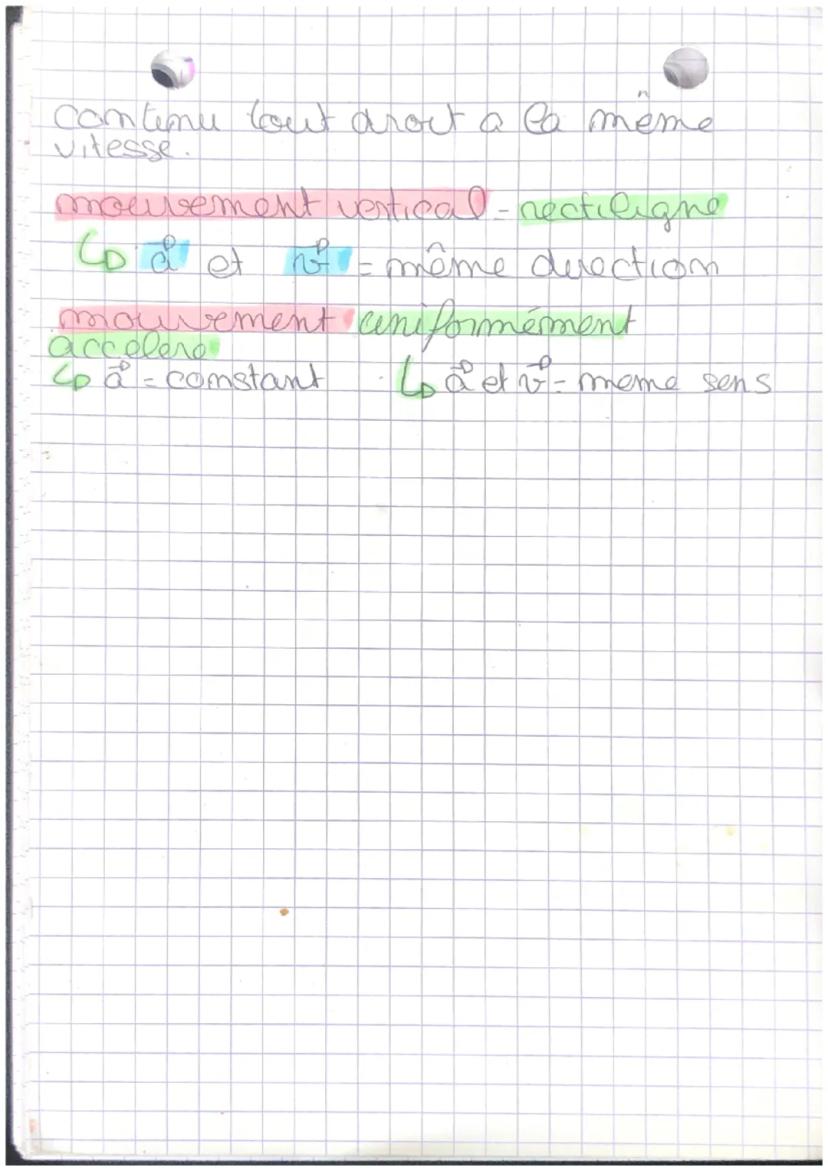 contunu tout droit a la même
vitesse.
mouvement vertical - rectiligne
↳ a⃗ et v⃗ = même direction
mouvement uniformément
accelere
↳ a⃗ = constant ↳ a⃗ et v⃗ = meme sens